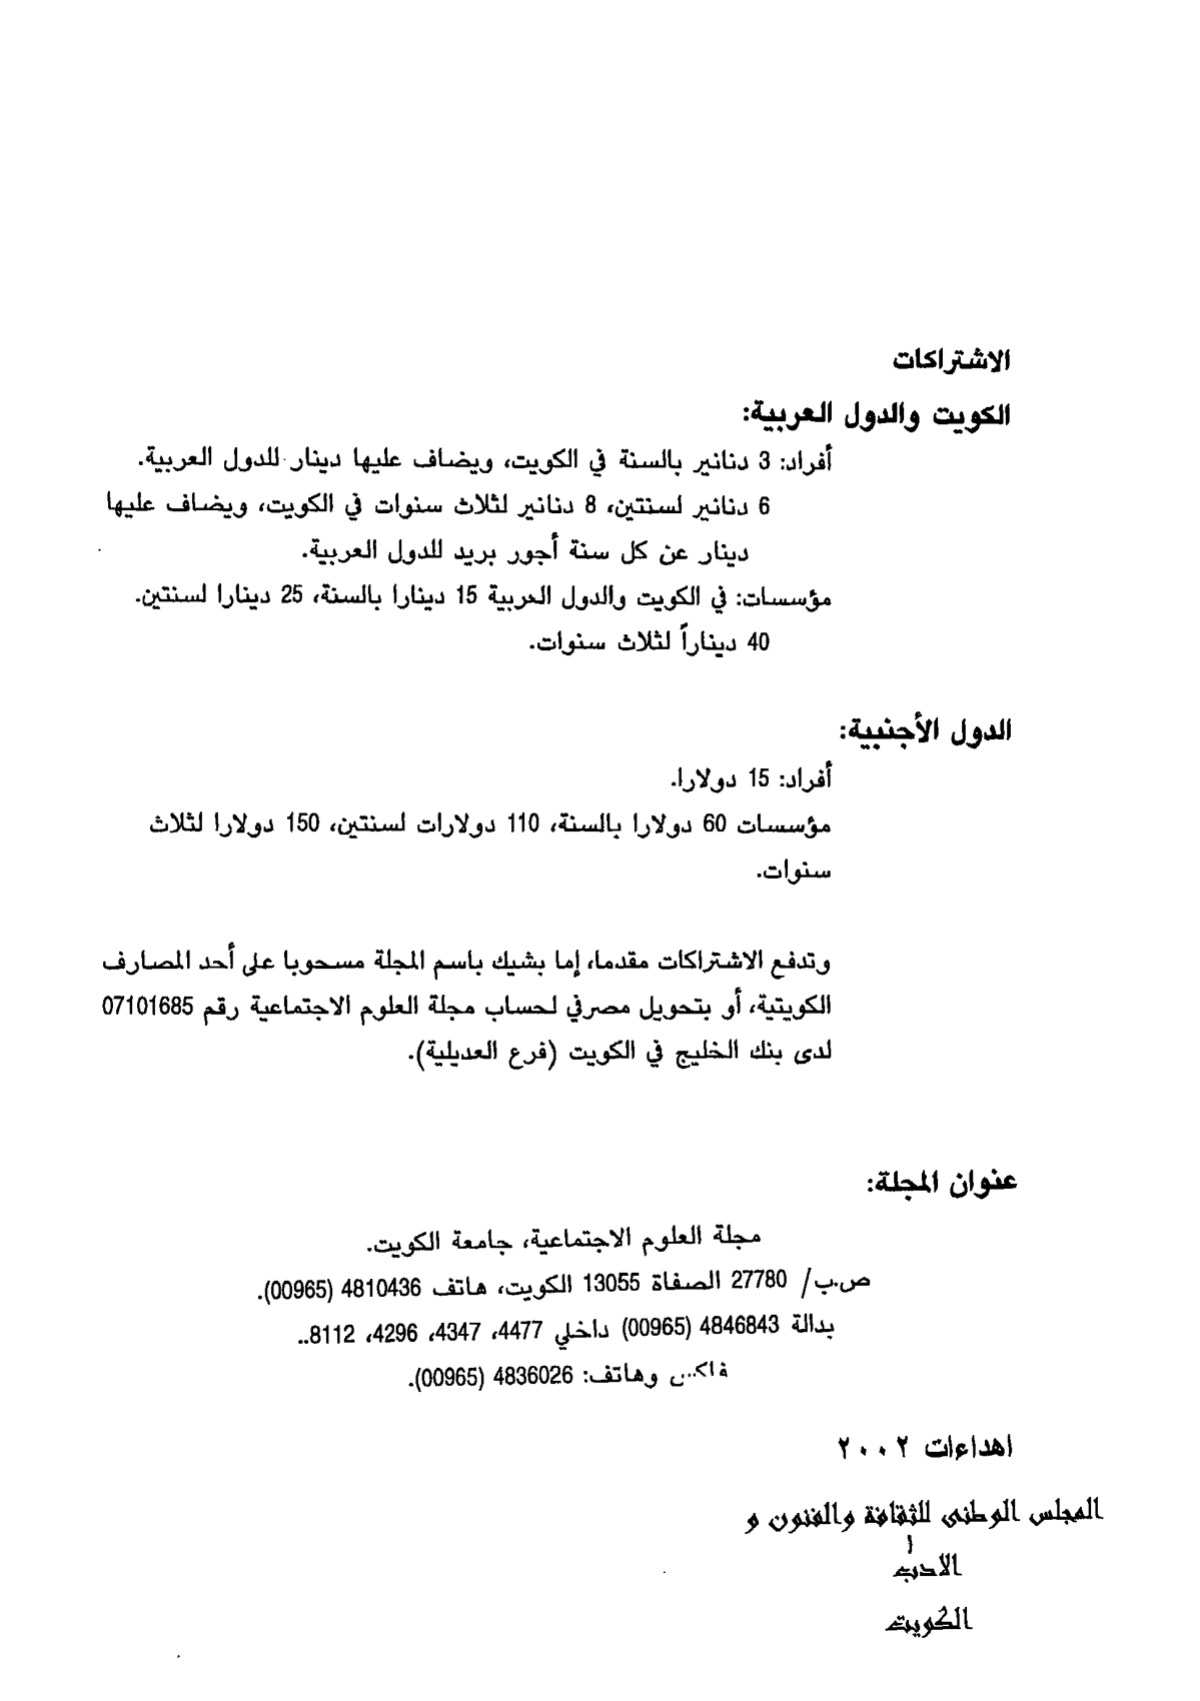 الاشتراكات
الكويت والدول العربية:
أفراد: 3 دنانير بالسنة في الكويت، ويضاف عليها دينار للدول العربية.
6 دنانير لسنتين، 8 دنانير لثلاث سنوات في الكويت، ويضاف عليها
دينار عن كل سنة أجور بريد للدول العربية.
مؤسسات: في الكويت والدول العربية 15 دينارا بالسنة، 25 دينارا لسنتين.
40 ديناراً لثلاث سنوات.
الدول الأجنبية:
أفراد: 15 دولارا.
مؤسسات 60 دولارا بالسنة، 110 دولارات لسنتين، 150 دولارا لثلاث
سنوات.
وتدفع الاشتراكات مقدما، إما بشيك باسم المجلة مسحوبا على أحد المصارف
الكويتية، أو بتحويل مصرفي لحساب مجلة العلوم الاجتماعية رقم 07101685
لدى بنك الخليج في الكويت (فرع العديلية).
عنوان المجلة:
مجلة العلوم الاجتماعية، جامعة الكويت.
ص.ب/ 27780 الصفاة 13055 الكويت، هاتف 4810436 (00965).
بدالة 4846843 (00965) داخلي 4477، 4347، 4296، 8112..
فاكس وهاتف: 4836026 (00965).
اهداءات ٢٠٠٢
المجلس الوطنى للثقافة والفنون و
الادب
الكويت